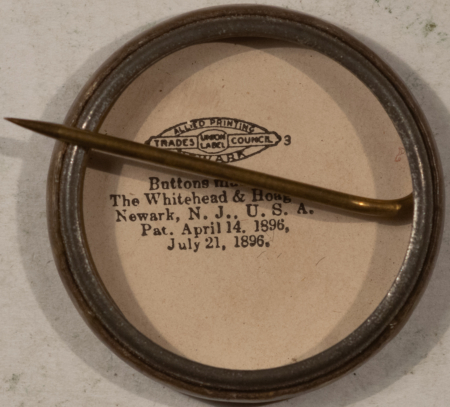 ALLIED PRINTING
TRADES UNION LABEL COUNCIL 3
Buttons
The Whitehead &
Newark, N. J., U. S. A.
Pat. April 14, 1896,
July 21, 1896.